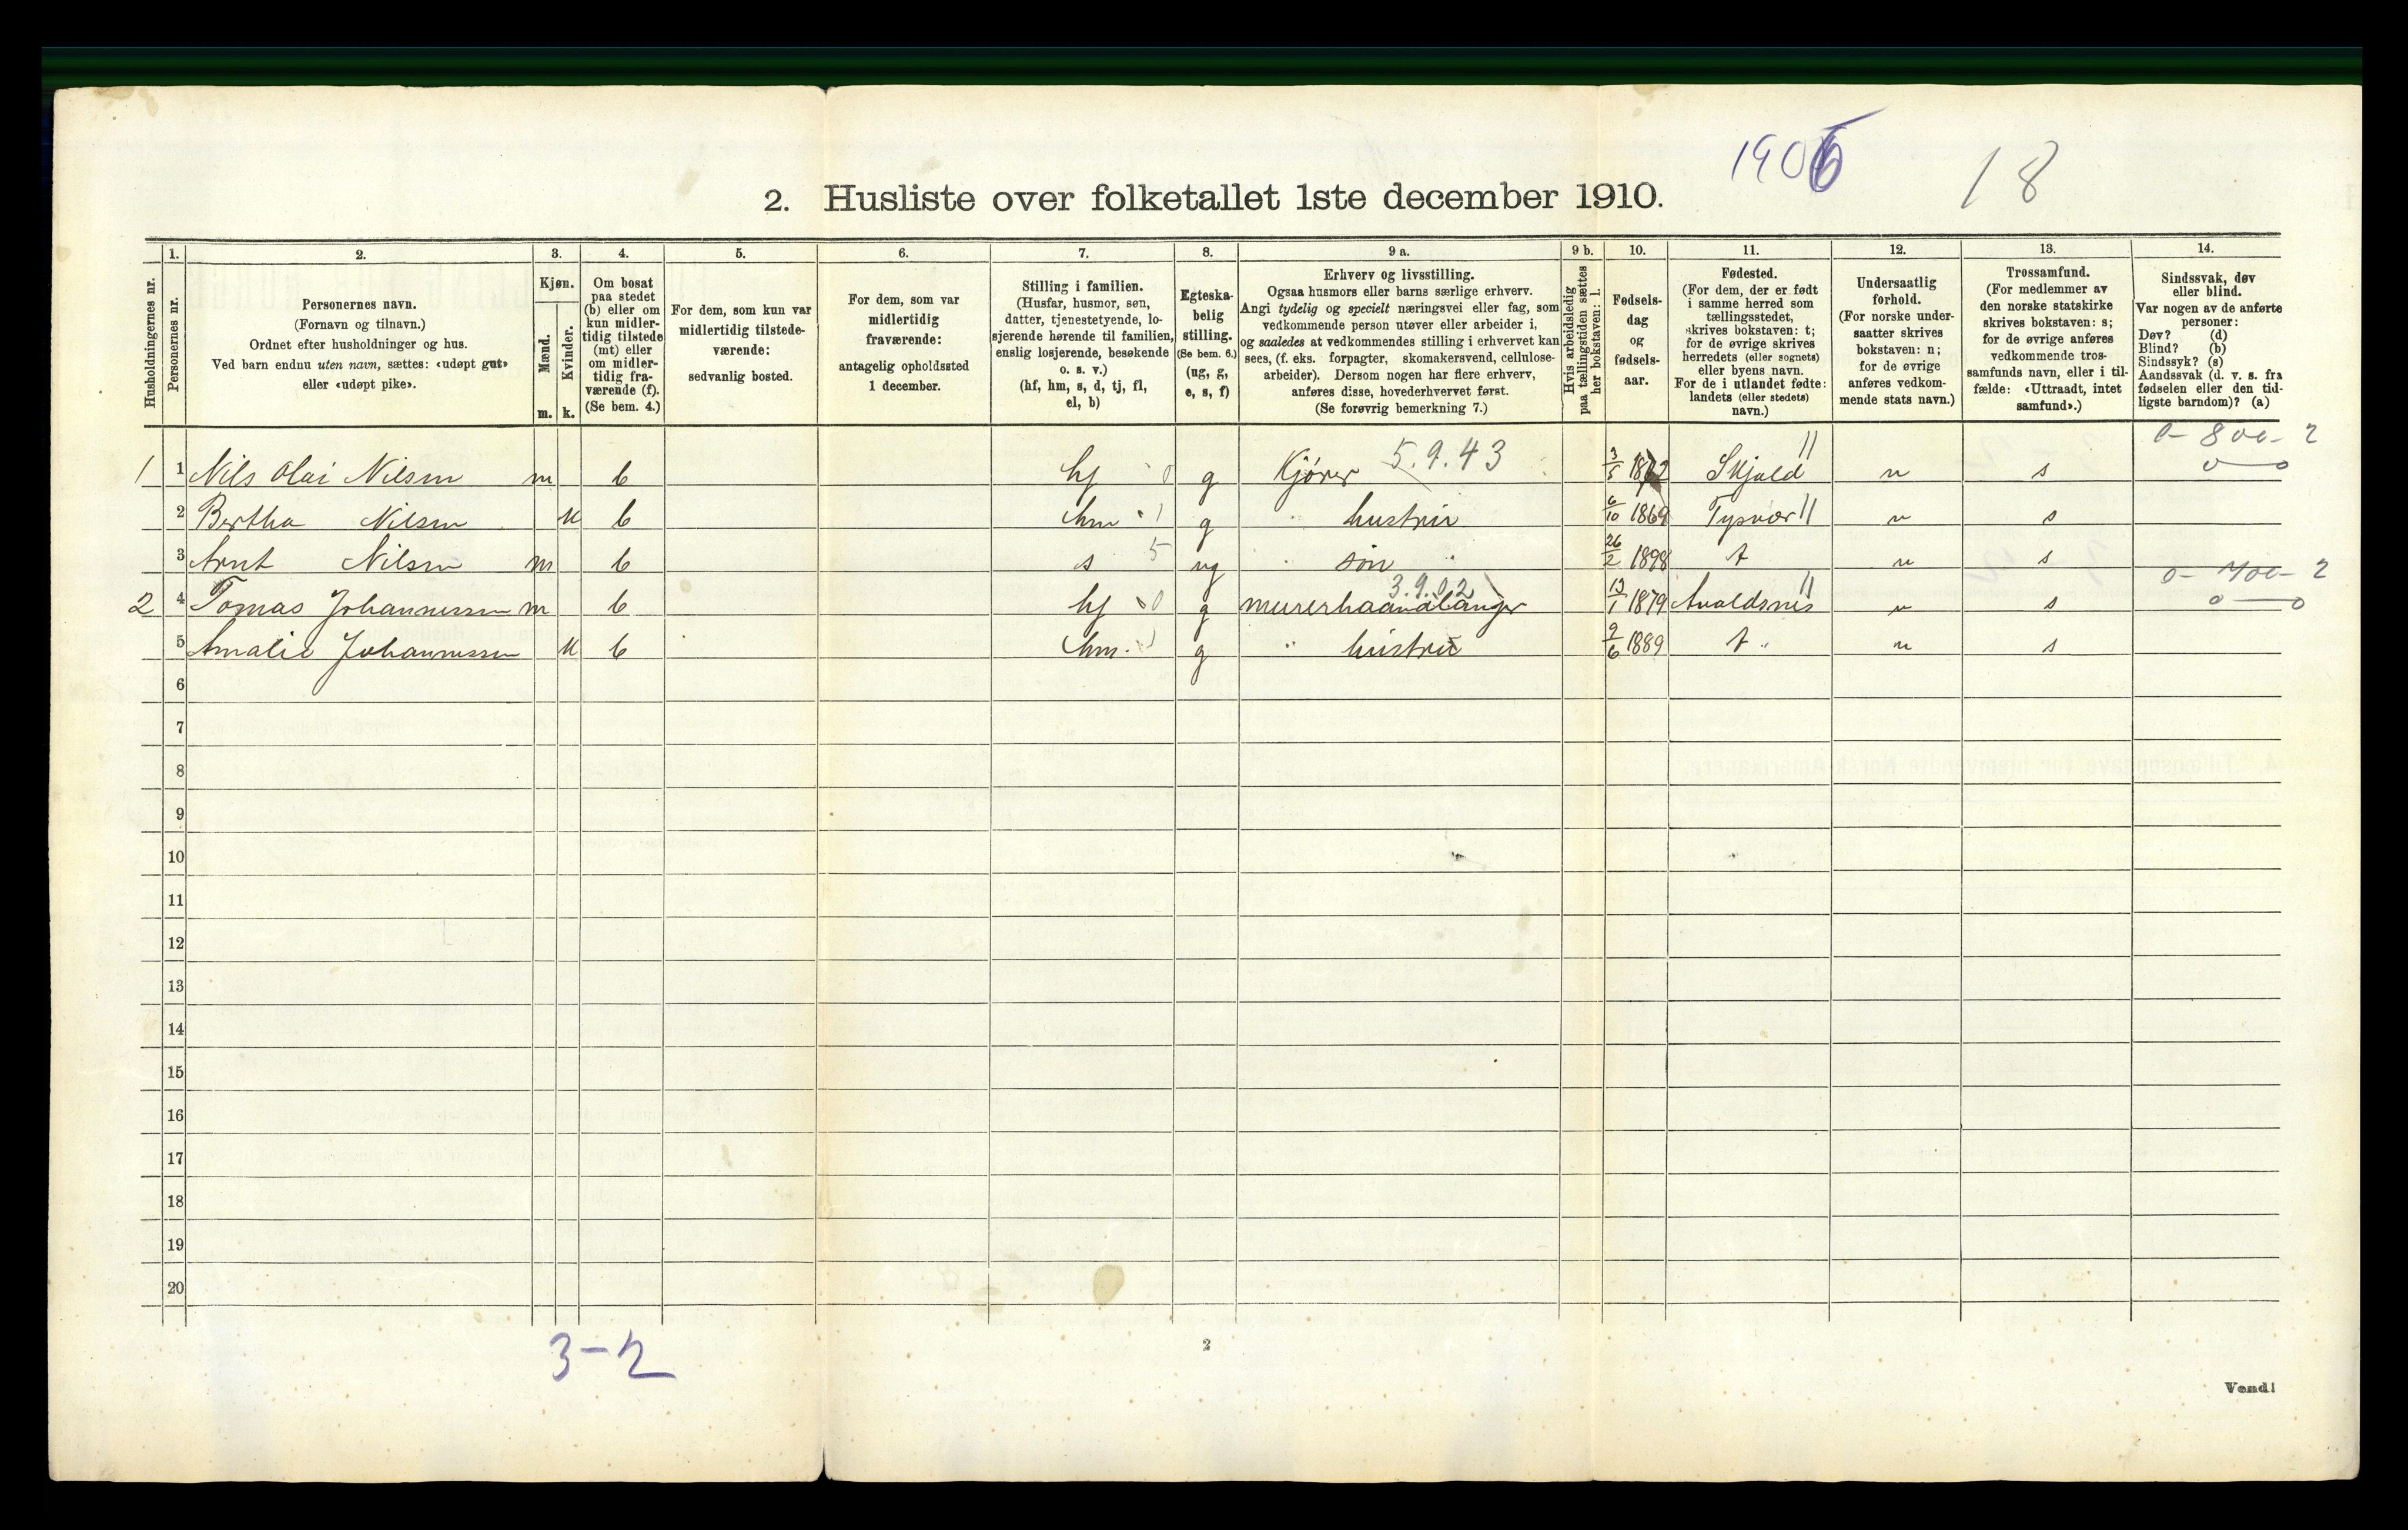 1906 18
2. Husliste over folketallet 1ste december 1910.
Husholdningernes nr.
1.
Personernes nr.
2.
Personernes navn.
(Fornavn og tilnavn.)
Ordnet efter husholdninger og hus.
Ved barn endnu uten navn, sættes: «udøpt gut»
eller «udøpt pike».
3.
Kjøn.
Mænd.
m.
Kvinder.
k.
4.
Om bosat
paa stedet
(b) eller om
kun midler-
tidig tilstede
(mt) eller
om midler-
tidig fra-
værende (f).
(Se bem. 4.)
5.
For dem, som kun var
midlertidig tilstede-
værende:
sedvanlig bosted.
6.
For dem, som var
midlertidig
fraværende:
antagelig opholdssted
1 december.
7.
Stilling i familien.
(Husfar, husmor, søn,
datter, tjenestetyende, lo-
sjerende hørende til familien,
enslig losjerende, besøkende
o. s. v.)
(hf, hm, s, d, tj, fl,
el, b)
8.
Egteska-
belig
stilling.
(Se bem. 6.)
(ug, g,
e, s, f)
9 a.
Erhverv og livsstilling.
Ogsaa husmors eller barns særlige erhverv.
Angi tydelig og specielt næringsvei eller fag, som
vedkommende person utøver eller arbeider i,
og saaledes at vedkommendes stilling i erhvervet kan
sees, (f. eks. forpagter, skomakersvend, cellulose-
arbeider). Dersom nogen har flere erhverv,
anføres disse, hovederhvervet først.
(Se forøvrig bemerkning 7.)
9 b.
Hvis arbeidsledig
paa tællingstiden sættes
her bokstaven: l.
10.
Fødsels-
dag
og
fødsels-
aar.
11.
Fødested.
(For dem, der er født
i samme herred som
tællingsstedet,
skrives bokstaven: t;
for de øvrige skrives
herredets (eller sognets)
eller byens navn.
For de i utlandet fødte:
landets (eller stedets)
navn.)
12.
Undersaatlig
forhold.
(For norske under-
saatter skrives
bokstaven: n;
for de øvrige
anføres vedkom-
mende stats navn.)
13.
Trossamfund.
(For medlemmer av
den norske statskirke
skrives bokstaven: s;
for de øvrige anføres
vedkommende tros-
samfunds navn, eller i til-
fælde: «Uttraadt, intet
samfund».)
14.
Sindssvak, døv
eller blind.
Var nogen av de anførte
personer:
Døv? (d)
Blind? (b)
Sindssyk? (s)
Aandssvak (d. v. s. fra
fødselen eller den tid-
ligste barndom)? (a)
0-800-2
1 1 Nils Olai Nilsen m b hf 0 g Kjører 5.9.43 3/5 1872 Skjold n s 0 0
2 Bertha Nilsen k b hm 1 g " hustru 6/10 1869 Tysvær n s
3 Arnt Nilsen m b s 5 ug " søn " 26/2 1898 t n s
3.9.02 0-700-2
2 4 Tomas Johannessen m b hf 0 g murerhaandlanger 13/1 1879 Avaldsnes n s 0 0
5 Amalie Johannessen k b hm. 1 g " hustru 9/6 1889 t " n s
6
7
8
9
10
11
12
13
14
15
16
17
18
19
20
3-2
2
Vend!